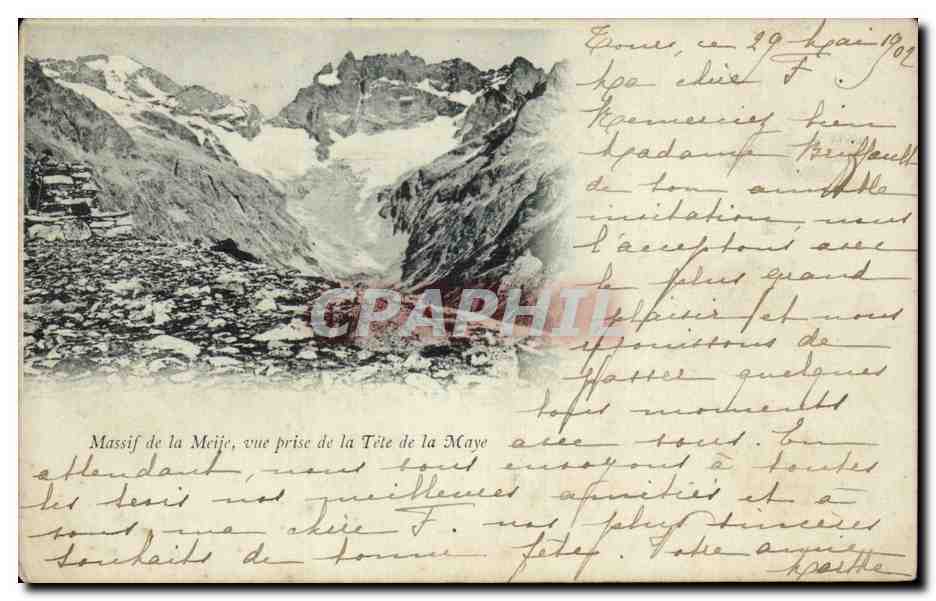 Tours, ce 29 Mai 1902
Ma chère F.
Remerciez bien
Madame Briffault
de son aimable
invitation, nous
l'acceptons avec
le plus grand
plaisir, et nous
jouissons de
passer quelques
bons moments
avec vous. En
attendant, nous vous envoyons à toutes
les trois nos meilleures amitiés et à
vous, ma chère F. nos plus sincères
souhaits de bonne fête. Votre amie
Marthe
Massif de la Meije, vue prise de la Tête de la Maye
CPAPHIL